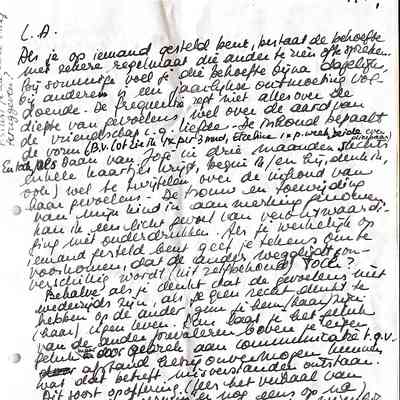 L.A.
Als je op iemand gesteld bent, bestaat de behoefte
met zekere regelmaat die ander te zien of te spreken.
Bij sommige voel je die behoefte bijna dagelijks,
bij anderen is een jaarlijkse ontmoeting vol-
doende. De frequentie zegt niet alles over de
diepte van gevoelens, wel over de aard van
de vriendschap c.q. liefde. De inhoud bepaalt
de vorm
En toch, als Daan van Jopie in drie maanden slechts
enkele kaartjes krijgt, begin ik (en hij, denk ik,
ook) wel te twijfelen over de inhoud van
haar gevoelens. De trouw en toewijding
van mijn kind in aanmerking genomen
kan ik een licht gevoel van verontwaardi-
ging niet onderdrukken. Als je werkelijk op
iemand gesteld bent geef je tekens om te
voorkomen, dat de ander wegglijdt, on-
verschillig wordt (uit zelfbehoud). Toch -
Behalve als je denkt dat de gevoelens niet
wederzijds zijn, als je geen recht denkt te
hebben op de ander, gun je hem/haar zijn
(haar) eigen leven. Dan laat je het geluk
van de ander prevaleren boven je eigen
geluk door gebrek aan communicatie t.g.v.
afstand, hetzij onvermogen
wat dat betreft misverstanden ontstaan.
Dit soort opoffering (lees het verhaal van
nog eens op na